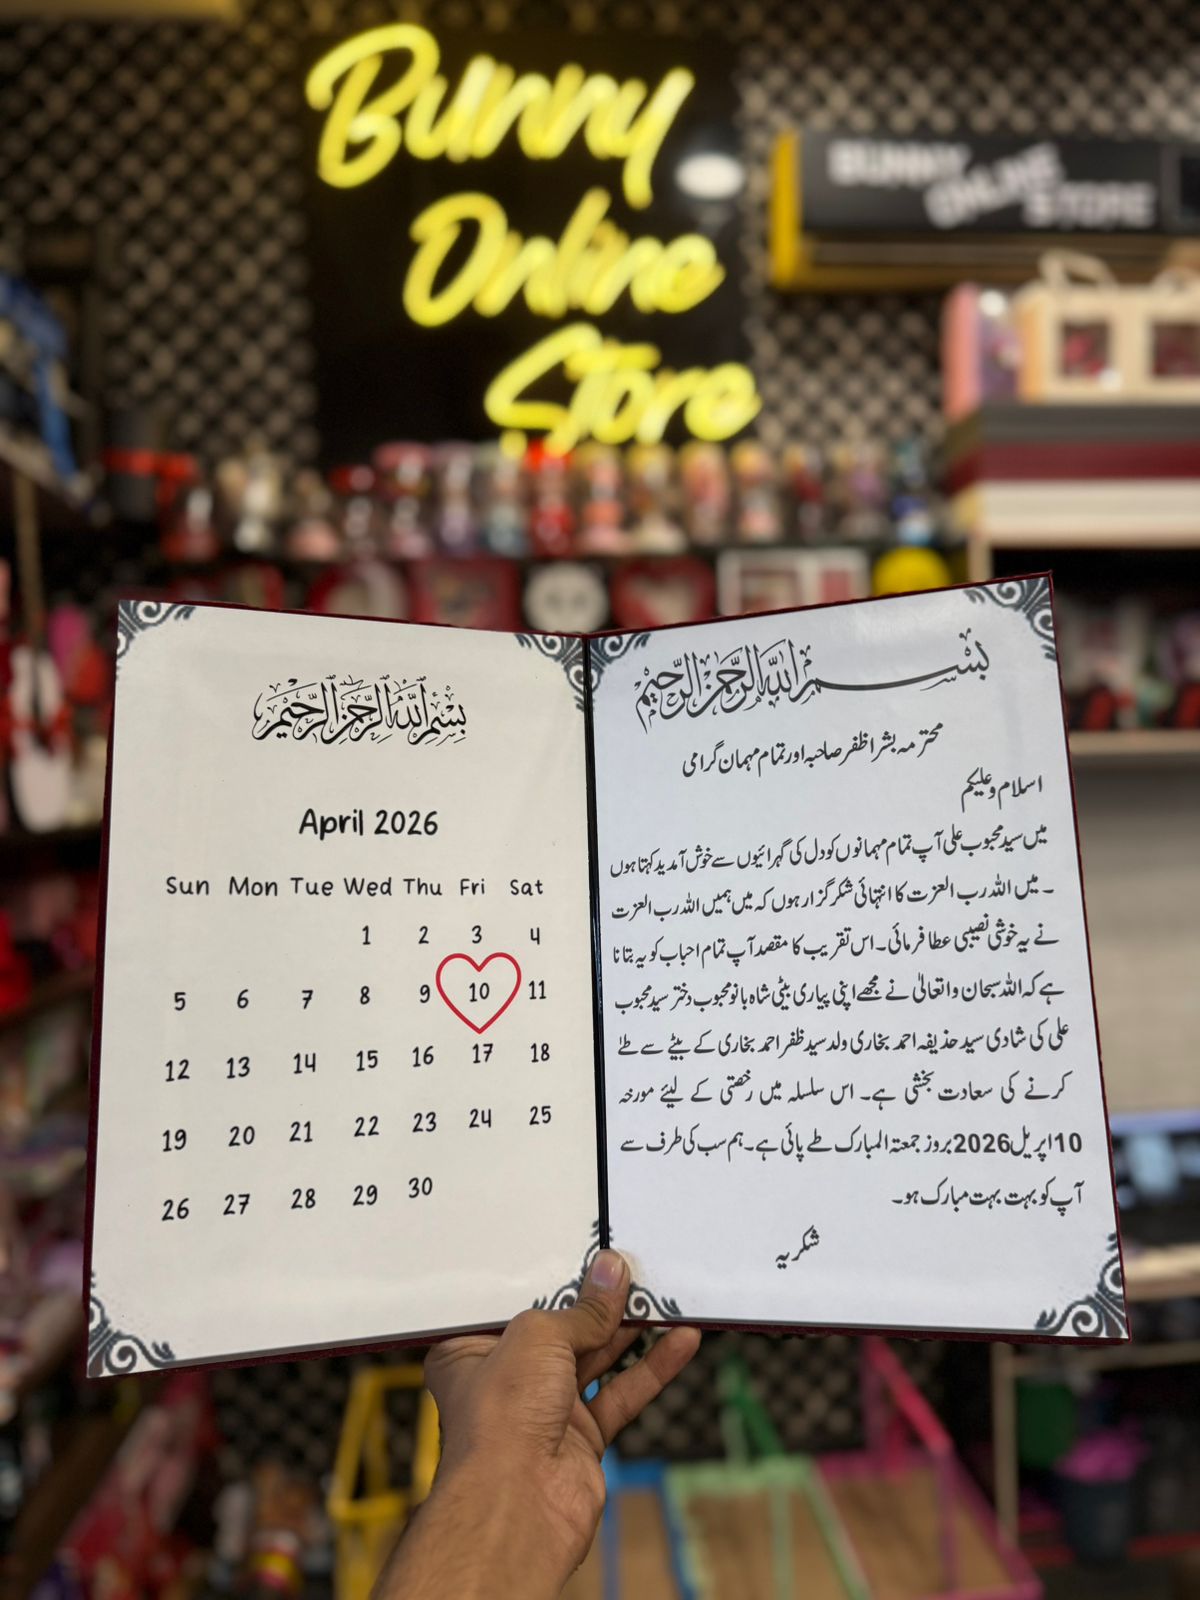 Bunny
Online
Store
BUNNY
ONLINE
STORE
بِسْمِ اللهِ الرَّحْمٰنِ الرَّحِيْمِ
April 2026
Sun Mon Tue Wed Thu Fri Sat
1 2 3 4
5 6 7 8 9 10 11
12 13 14 15 16 17 18
19 20 21 22 23 24 25
26 27 28 29 30
بسم اللہ الرحمن الرحیم
محترمہ بشرا ظفر صاحبہ اور تمام مہمان گرامی
اسلام و علیکم
میں سید محبوب علی آپ تمام مہمانوں کو دل کی گہرائیوں سے خوش آمدید کہتا ہوں
۔ میں اللہ رب العزت کا انتہائی شکر گزار ہوں کہ میں ہمیں اللہ رب العزت
نے یہ خوشی نصیبی عطا فرمائی۔ اس تقریب کا مقصد آپ تمام احباب کو یہ بتانا
ہے کہ اللہ سبحان و اتعالیٰ نے مجھے اپنی پیاری بیٹی شاہ بانو محبوب دختر سید محبوب
علی کی شادی سید حذیفہ احمد بخاری ولد سید ظفر احمد بخاری کے بیٹے سے طے
کرنے کی سعادت بخشی ہے۔ اس سلسلہ میں رخصتی کے لیئے مورخہ
10 اپریل 2026 بروز جمعتہ المبارک طے پائی ہے۔ ہم سب کی طرف سے
آپ کو بہت بہت مبارک ہو۔
شکریہ